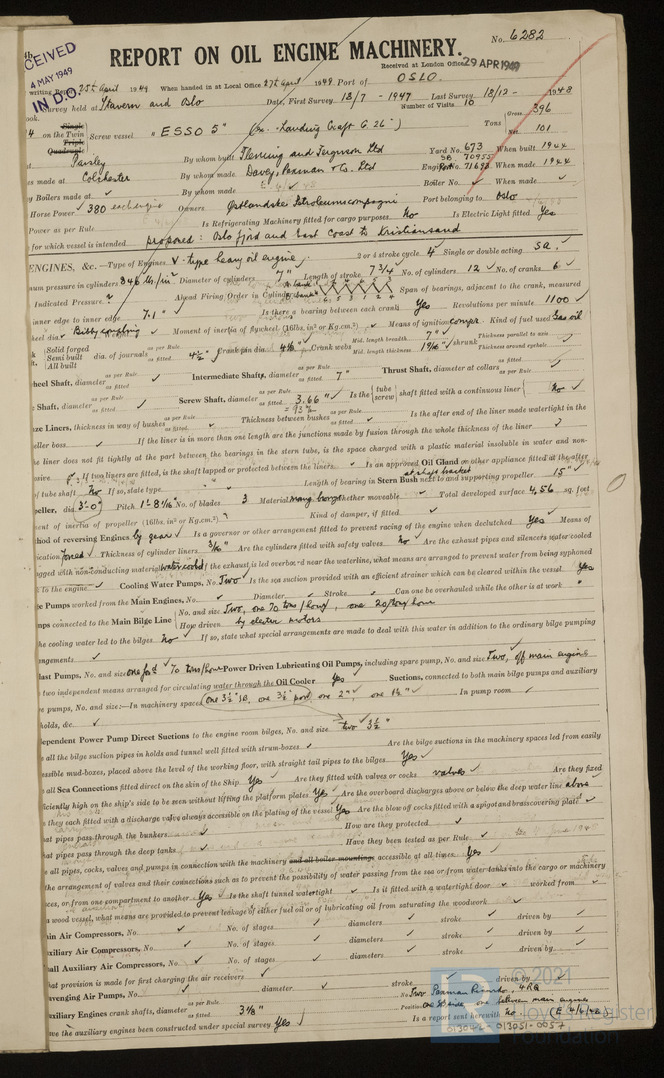 No. 6282
RECEIVED
4 MAY 1949
IN D.O.
REPORT ON OIL ENGINE MACHINERY.
Received at London Office 29 APR 1949
writing Report 25th April 1949 When handed in at Local Office 27th April 1949 Port of OSLO.
Survey held at Stavern and Oslo Date, First Survey 13/7 - 1947 Last Survey 13/12 - 1948
Number of Visits 10
on the Single Twin Triple Quadruple Screw vessel "ESSO 5" (ex. Landing Craft G 26) Tons Gross 396 Net 101
at Paisley By whom built Fleming and Ferguson Ltd Yard No. 673 When built 1944
Engines made at Colchester By whom made Davey, Paxman & Co. Ltd Engine No. 70955 71693 When made 1944
Boilers made at By whom made Boiler No. When made
Horse Power 380 Owners Østlandske Petroleumscompagni Port belonging to Oslo
Power as per Rule Is Refrigerating Machinery fitted for cargo purposes. No Is Electric Light fitted Yes
for which vessel is intended proposed: Oslo fjord and East Coast to Kristiansand
ENGINES, &c.—Type of Engines V-type heavy oil engine 2 or 4 stroke cycle 4 Single or double acting S.A.
mum pressure in cylinders 846 lbs/in² Diameter of cylinders 7" Length of stroke 7 3/4 No. of cylinders 12 No. of cranks 6
Indicated Pressure Ahead Firing Order in Cylinders Span of bearings, adjacent to the crank, measured
inner edge to inner edge 7.1" Is there a bearing between each crank Yes Revolutions per minute 1100
wheel dia. Bibby coupling Moment of inertia of flywheel (16lbs. in² or Kg.cm²) Means of ignition compr. Kind of fuel used Gas oil
Solid forged Semi built All built dia. of journals as per Rule as fitted 4½" Crank pin dia. Crank webs Mid. length breadth 7" Mid. length thickness shrunk Thickness parallel to axis Thickness around eyehole
wheel Shaft, diameter as per Rule as fitted Intermediate Shafts, diameter 7" Thrust Shaft, diameter at collars as per Rule as fitted
Shaft, diameter as per Rule as fitted Screw Shaft, diameter as per Rule as fitted 3.66" = 93 m/m Is the tube screw shaft fitted with a continuous liner No
ze Liners, thickness in way of bushes as per Rule as fitted Thickness between bushes as per Rule as fitted Is the after end of the liner made watertight in the
eller boss If the liner is in more than one length are the junctions made by fusion through the whole thickness of the liner
he liner does not fit tightly at the part between the bearings in the stern tube, is the space charged with a plastic material insoluble in water and non-
sive If two liners are fitted, is the shaft lapped or protected between the liners Is an approved Oil Gland or other appliance fitted at the after
of tube shaft No If so, state type Length of bearing in Stern Bush next to and supporting propeller 15"
eller, dia. 3'-0" Pitch No. of blades 3 Material mang. bronze whether moveable Total developed surface 4.56 sq. feet
ent of inertia of propeller (16lbs. in² or Kg.cm²) Kind of damper, if fitted
thod of reversing Engines by gear Is a governor or other arrangement fitted to prevent racing of the engine when declutched Yes Means of
ication forced Thickness of cylinder liners 3/16" Are the cylinders fitted with safety valves No Are the exhaust pipes and silencers water cooled
gged with non-conducting material water cooled If the exhaust is led overboard near the waterline, what means are arranged to prevent water from being syphoned
to the engine Cooling Water Pumps, No. Two Is the sea suction provided with an efficient strainer which can be cleared within the vessel Yes
ge Pumps worked from the Main Engines, No. Diameter Stroke Can one be overhauled while the other is at work
mps connected to the Main Bilge Line No. and size Two, one 70 tons/hour, one 20 tons/hour
How driven by electric motors
he cooling water led to the bilges No If so, state what special arrangements are made to deal with this water in addition to the ordinary bilge pumping
ngements
llast Pumps, No. and size 70 tons/hour Power Driven Lubricating Oil Pumps, including spare pump, No. and size Two, off main engine
two independent means arranged for circulating water through the Oil Cooler Yes Suctions, connected to both main bilge pumps and auxiliary
e pumps, No. and size:—In machinery spaces one 3½" SB, one 3½ port one 2", one 1½" In pump room
holds, &c.
ependent Power Pump Direct Suctions to the engine room bilges, No. and size two 3½"
all the bilge suction pipes in holds and tunnel well fitted with strum-boxes Are the bilge suctions in the machinery spaces led from easily
essible mud-boxes, placed above the level of the working floor, with straight tail pipes to the bilges Yes
all Sea Connections fitted direct on the skin of the Ship Yes Are they fitted with valves or cocks valves Are they fixed
ciently high on the ship's side to be seen without lifting the platform plates Yes Are the overboard discharges above or below the deep water line above
they each fitted with a discharge valve always accessible on the plating of the vessel Yes Are the blow off cocks fitted with a spigot and brass covering plate
at pipes pass through the bunkers How are they protected
at pipes pass through the deep tanks Have they been tested as per Rule
all pipes, cocks, valves, and pumps in connection with the machinery and all boiler mountings accessible at all times Yes
the arrangement of valves and their connections such as to prevent the possibility of water passing from the sea or from water tanks into the cargo or machinery
ces, or from one compartment to another Yes Is the shaft tunnel watertight Is it fitted with a watertight door worked from
a wood vessel, what means are provided to prevent leakage of either fuel oil or of lubricating oil from saturating the woodwork
ain Air Compressors, No. No. of stages diameters stroke driven by
uxiliary Air Compressors, No. No. of stages diameters stroke driven by
all Auxiliary Air Compressors, No. No. of stages diameters stroke driven by
at provision is made for first charging the air receivers
avenging Air Pumps, No. diameter stroke driven by
uxiliary Engines crank shafts, diameter as per Rule as fitted 3 1/8" No. Two Paxman Ricardo, 4RQ
Position one SB side, one between main engines
ve the auxiliary engines been constructed under special survey Yes Is a report sent herewith No
013042-013051-0057
© 2021
Lloyd's Register
Foundation